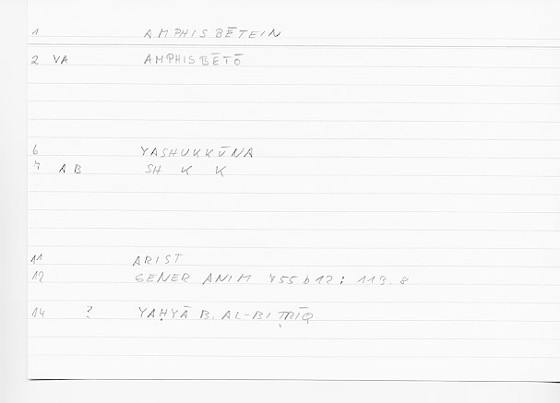 1 AMPHISBĒTEIN
2 VA AMPHISBĒTŌ
6 YASHUKKŪNA
7 AB SH K K
11 ARIST
12 GENER ANIM 755 b12; 119.8
14 ? YAḤYĀ B. AL-BIṬRĪQ